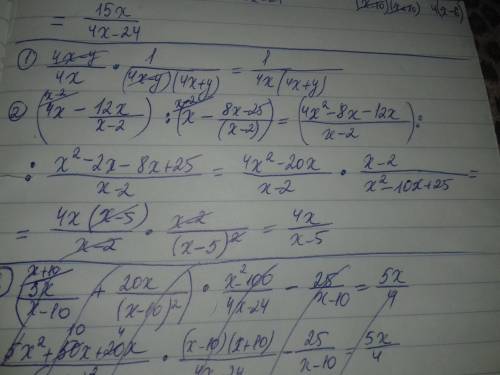 (x-10)(x+10) 4(x-6)
= 15x / 4x-24
① 4x-y / 4x · 1 / (4x-y)(4x+y) = 1 / 4x(4x+y)
② (4x - 12x / x-2) : (x - 8x-25 / (x-2)) = (4x²-8x-12x / x-2) :
: x²-2x-8x+25 / x-2 = 4x²-20x / x-2 · x-2 / x²-10x+25 =
= 4x(x-5) / x-2 · x-2 / (x-5)² = 4x / x-5
(5x / x-10 + 20x / (x-10)²) · x²-100 / 4x-24 - 25 / x-10 = 5x / 4
5x²+50x+20x · (x-10)(x+10) / 4x-24 - 25 / x-10 = 5x / 4